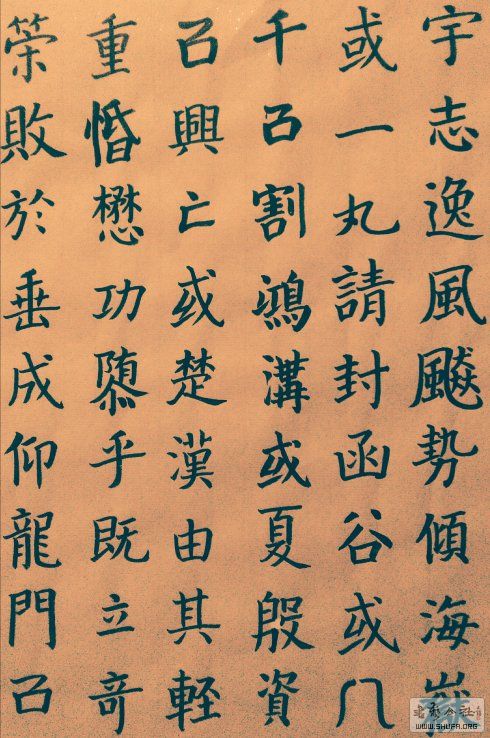 宇志逸風飈勢傾海嶽
或一丸請封函谷或八
千㠯割鴻溝或夏殷資
㠯興亡或楚漢由其輕
重惛懋功隳乎既立奇
榮敗於垂成仰龍門㠯
WWW.SHUFA.ORG